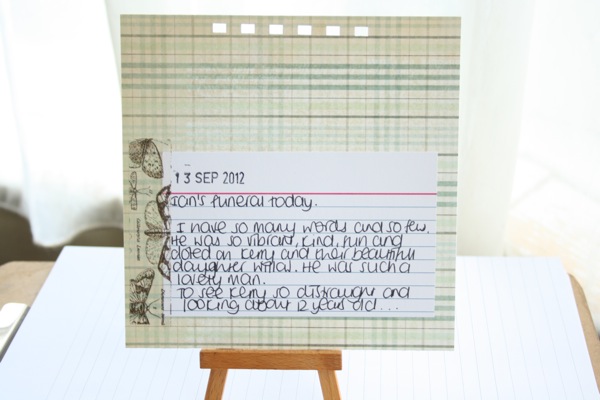 13 SEP 2012
Ian's funeral today.
I have so many words and so few.
He was so vibrant, kind, fun and
doted on Kerry and their beautiful
daughter Willow. He was such a
lovely man.
To see Kerry so distraught and
looking about 12 years old...